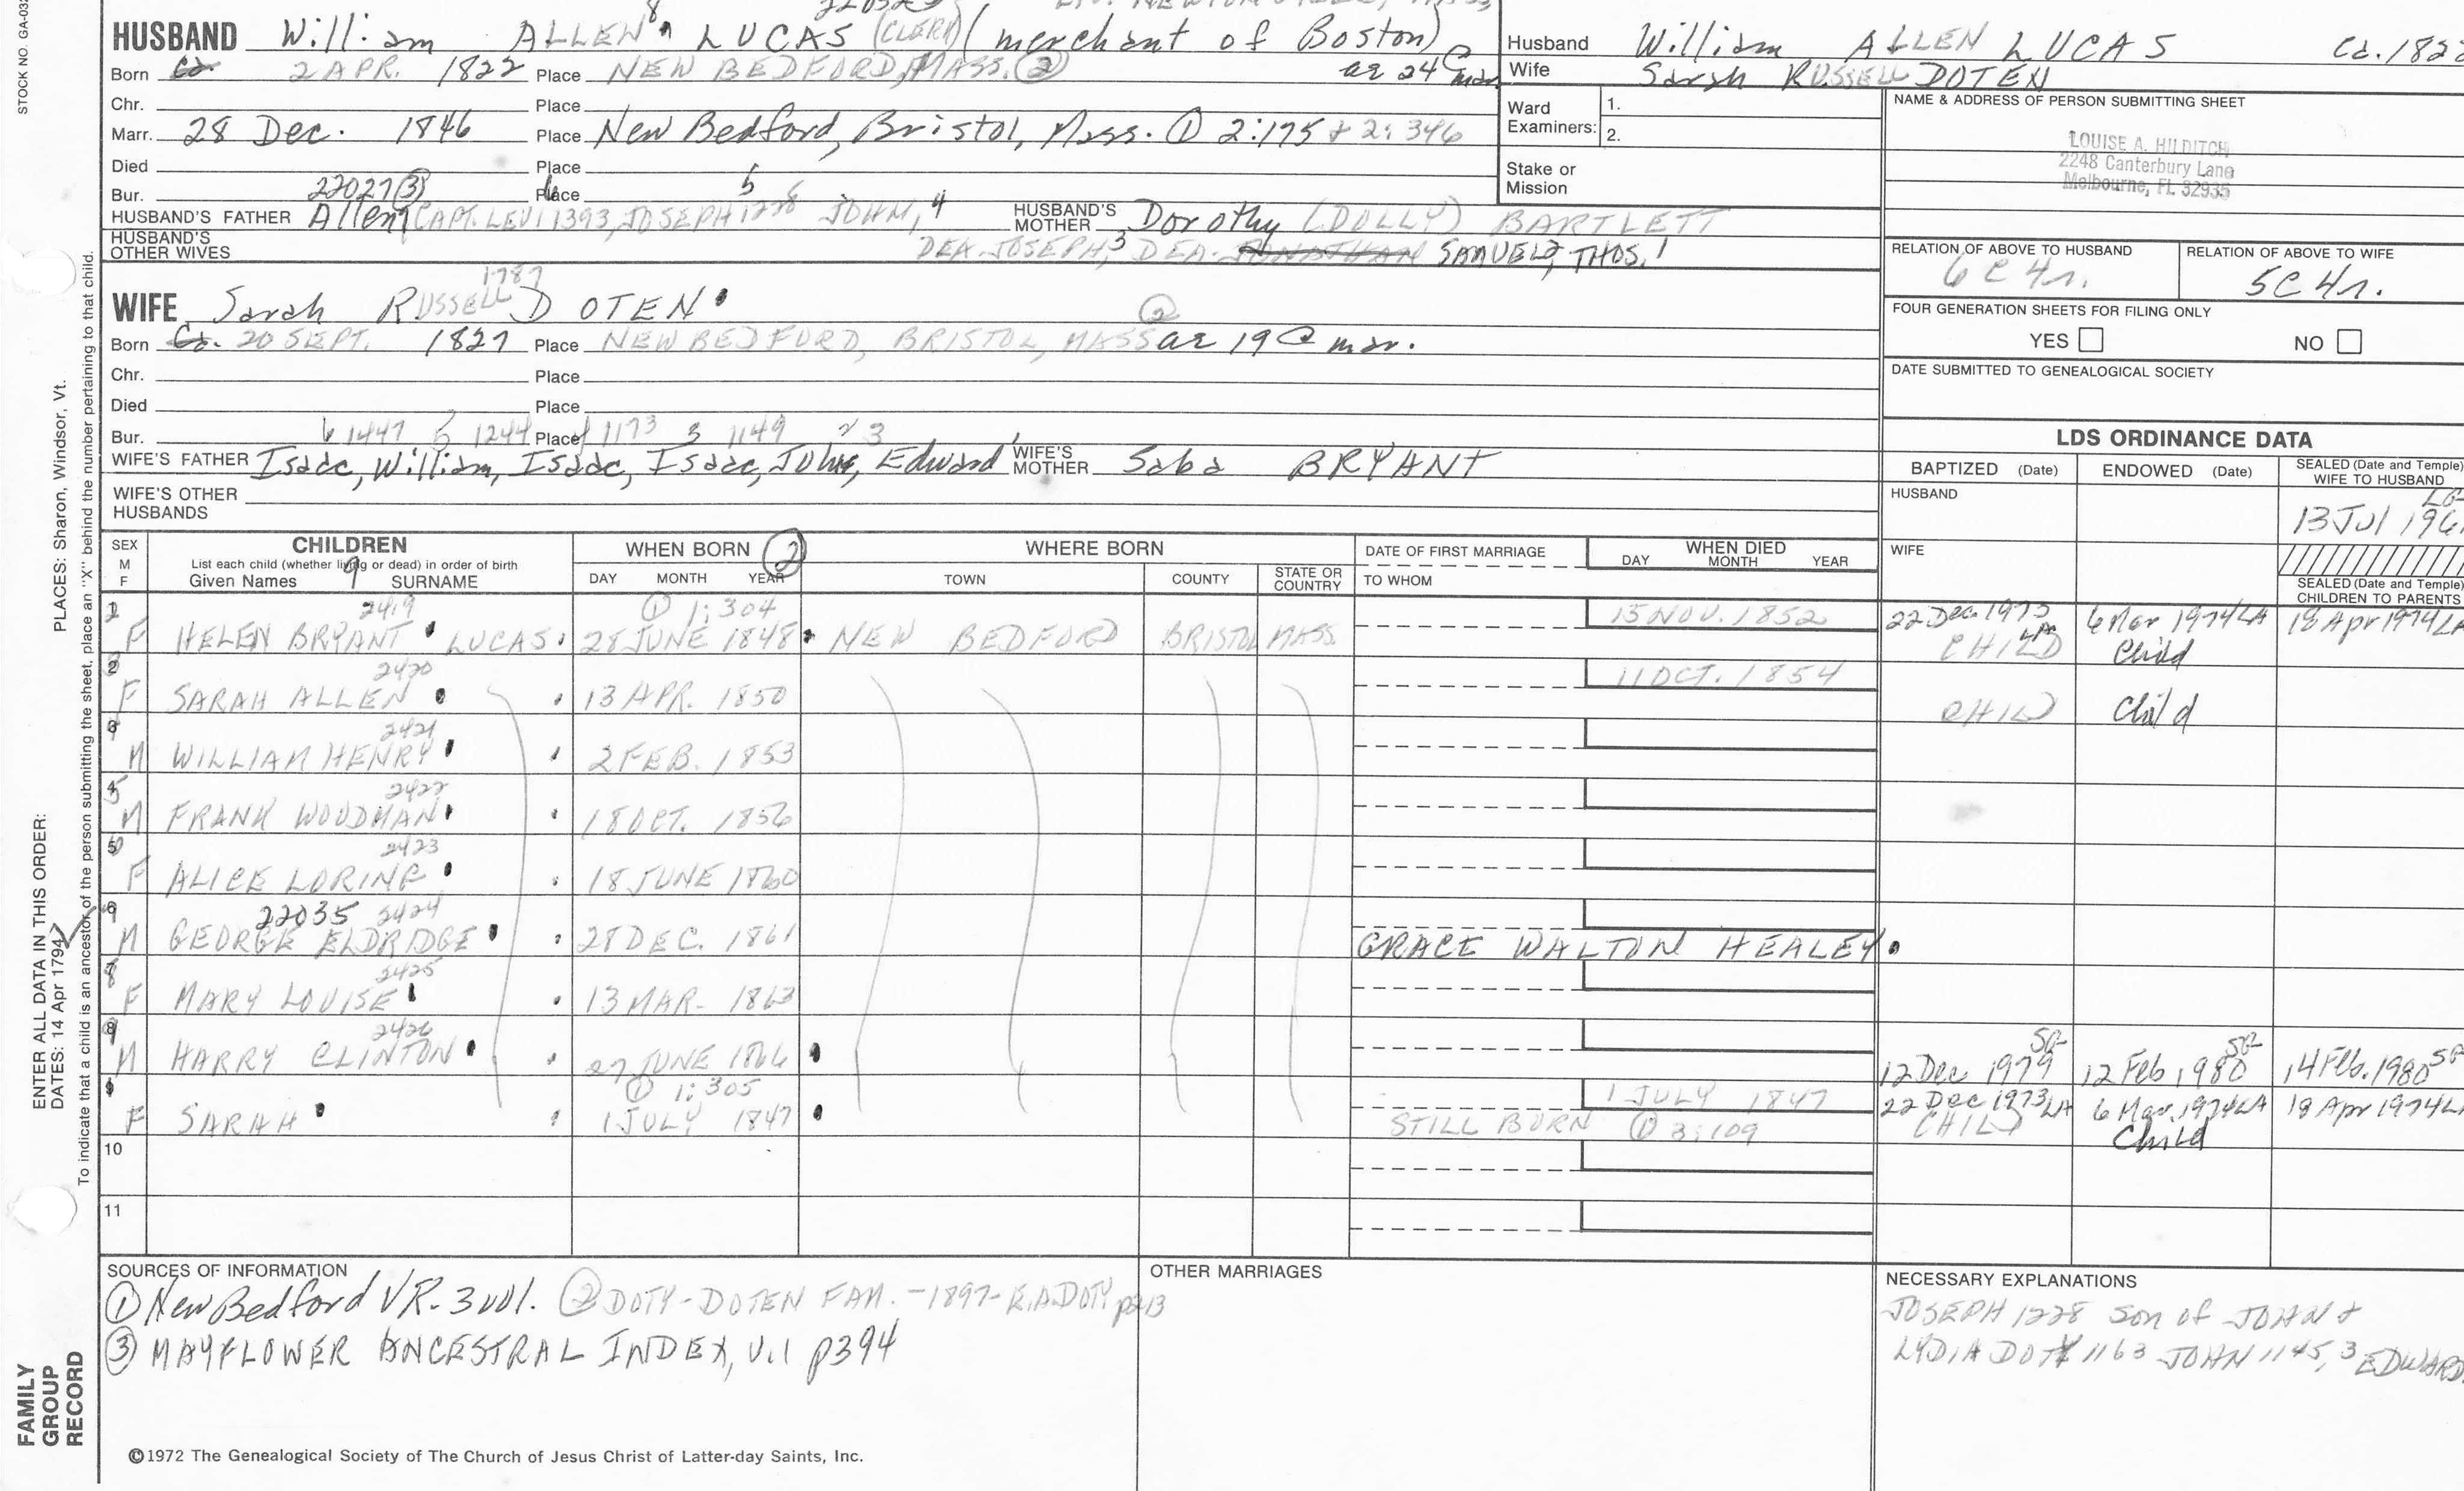 STOCK NO. GA-032
HUSBAND William ALLEN LUCAS (CLERK) (merchant of Boston)
Born Ca. 2 APR. 1822 Place NEW BEDFORD, MASS. (2) ae 24 @ mar.
Chr. Place
Marr. 28 Dec. 1846 Place New Bedford, Bristol, Mass. (1) 2:175 + 2:346
Died Place
Bur. 22027 (3) Place
HUSBAND'S FATHER Allen, CAPT. LEVI 1393, JOSEPH 1228 JOHN, 4 HUSBAND'S MOTHER Dorothy (DOLLY) BARTLETT
HUSBAND'S OTHER WIVES DEA. JOSEPH, 3 DEA. JONATHAN SAMUEL 2, THOS. 1
1787
WIFE Sarah RUSSELL DOTEN
Born Ca. 20 SEPT. 1827 Place NEW BEDFORD, BRISTOL, MASS (2) ae 19 @ mar.
Chr. Place
Died Place
Bur. 6 1447 5 1244 Place 4 1173 3 1149 2 3
WIFE'S FATHER Isaac, William, Isaac, Isaac, John, Edward WIFE'S MOTHER Saba BRYANT
WIFE'S OTHER HUSBANDS
Husband William ALLEN LUCAS Ca. 1822
Wife Sarah RUSSELL DOTEN
Ward Examiners: 1.
2.
Stake or Mission
NAME & ADDRESS OF PERSON SUBMITTING SHEET
LOUISE A. HILDITCH
2248 Canterbury Lane
Melbourne, FL 32935
RELATION OF ABOVE TO HUSBAND RELATION OF ABOVE TO WIFE
6C 4r. 5C 4r.
FOUR GENERATION SHEETS FOR FILING ONLY
YES NO
DATE SUBMITTED TO GENEALOGICAL SOCIETY
LDS ORDINANCE DATA
BAPTIZED (Date) ENDOWED (Date) SEALED (Date and Temple) WIFE TO HUSBAND
HUSBAND LG
13 Jul 196
WIFE
SEALED (Date and Temple) CHILDREN TO PARENTS
SEX M F CHILDREN WHEN BORN (2) WHERE BORN DATE OF FIRST MARRIAGE WHEN DIED
List each child (whether living or dead) in order of birth
9
Given Names SURNAME DAY MONTH YEAR TOWN COUNTY STATE OR COUNTRY TO WHOM DAY MONTH YEAR
2419 (1) 1:304 15 NOV. 1852 22 Dec 1973 LA 6 Mar 1974 LA 18 Apr 1974 LA
F HELEN BRYANT LUCAS 28 JUNE 1848 NEW BEDFORD BRISTOL MASS. CHILD Child
2420 11 OCT. 1854
F SARAH ALLEN 13 APR. 1850 CHILD Child
2421
M WILLIAM HENRY 2 FEB. 1853
2422
M FRANK WOODMAN 18 OCT. 1856
2423
F ALICE LORING 18 JUNE 1860
22035 2424
M GEORGE ELDRIDGE 28 DEC. 1861 GRACE WALTON HEALEY
2425
F MARY LOUISE 13 MAR. 1863
2426
M HARRY CLINTON 27 JUNE 1866 12 Dec 1979 SG 12 Feb 1980 SG 14 Feb. 1980 SG
(1) 1:305 1 JULY 1847 22 Dec 1973 LA 6 Mar. 1974 LA 18 Apr 1974 LA
F SARAH 1 JULY 1847 STILL BORN (1) 3:109 CHILD Child
10
11
SOURCES OF INFORMATION
(1) New Bedford VR. 3 vol. (2) DOTY-DOTEN FAM. -1897- E.A. DOTY
(3) MAYFLOWER ANCESTRAL INDEX, v.1 p394
OTHER MARRIAGES
NECESSARY EXPLANATIONS
JOSEPH 1228 son of JOHN +
LYDIA DOTY 1163 JOHN 1145, 3 EDWARD
PLACES: Sharon, Windsor, Vt.
To indicate that a child is an ancestor of the person submitting the sheet, place an "X" behind the number pertaining to that child.
ENTER ALL DATA IN THIS ORDER:
DATES: 14 Apr 1794
FAMILY GROUP RECORD
©1972 The Genealogical Society of The Church of Jesus Christ of Latter-day Saints, Inc.